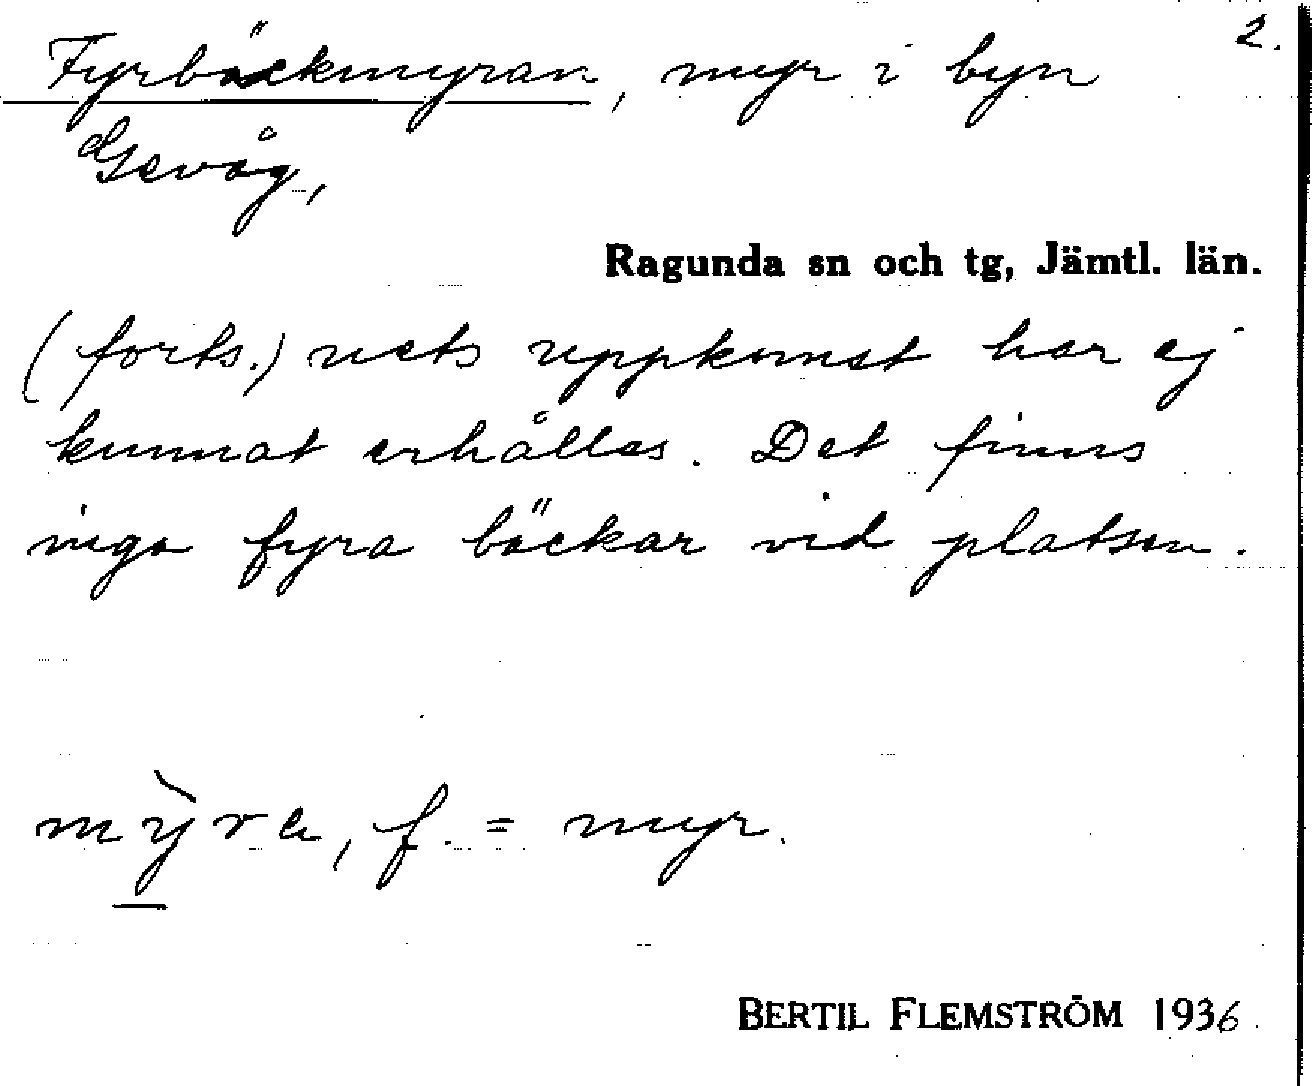 2.
Fyrbäckmyran, myr i byn
Gevåg,
Ragunda sn och tg, Jämtl. län.
(forts.) nets uppkomst har ej
kunnat erhållas. Det finns
inga fyra bäckar vid platsen.
mỳra, f. = myr.
BERTIL FLEMSTRÖM 1936.